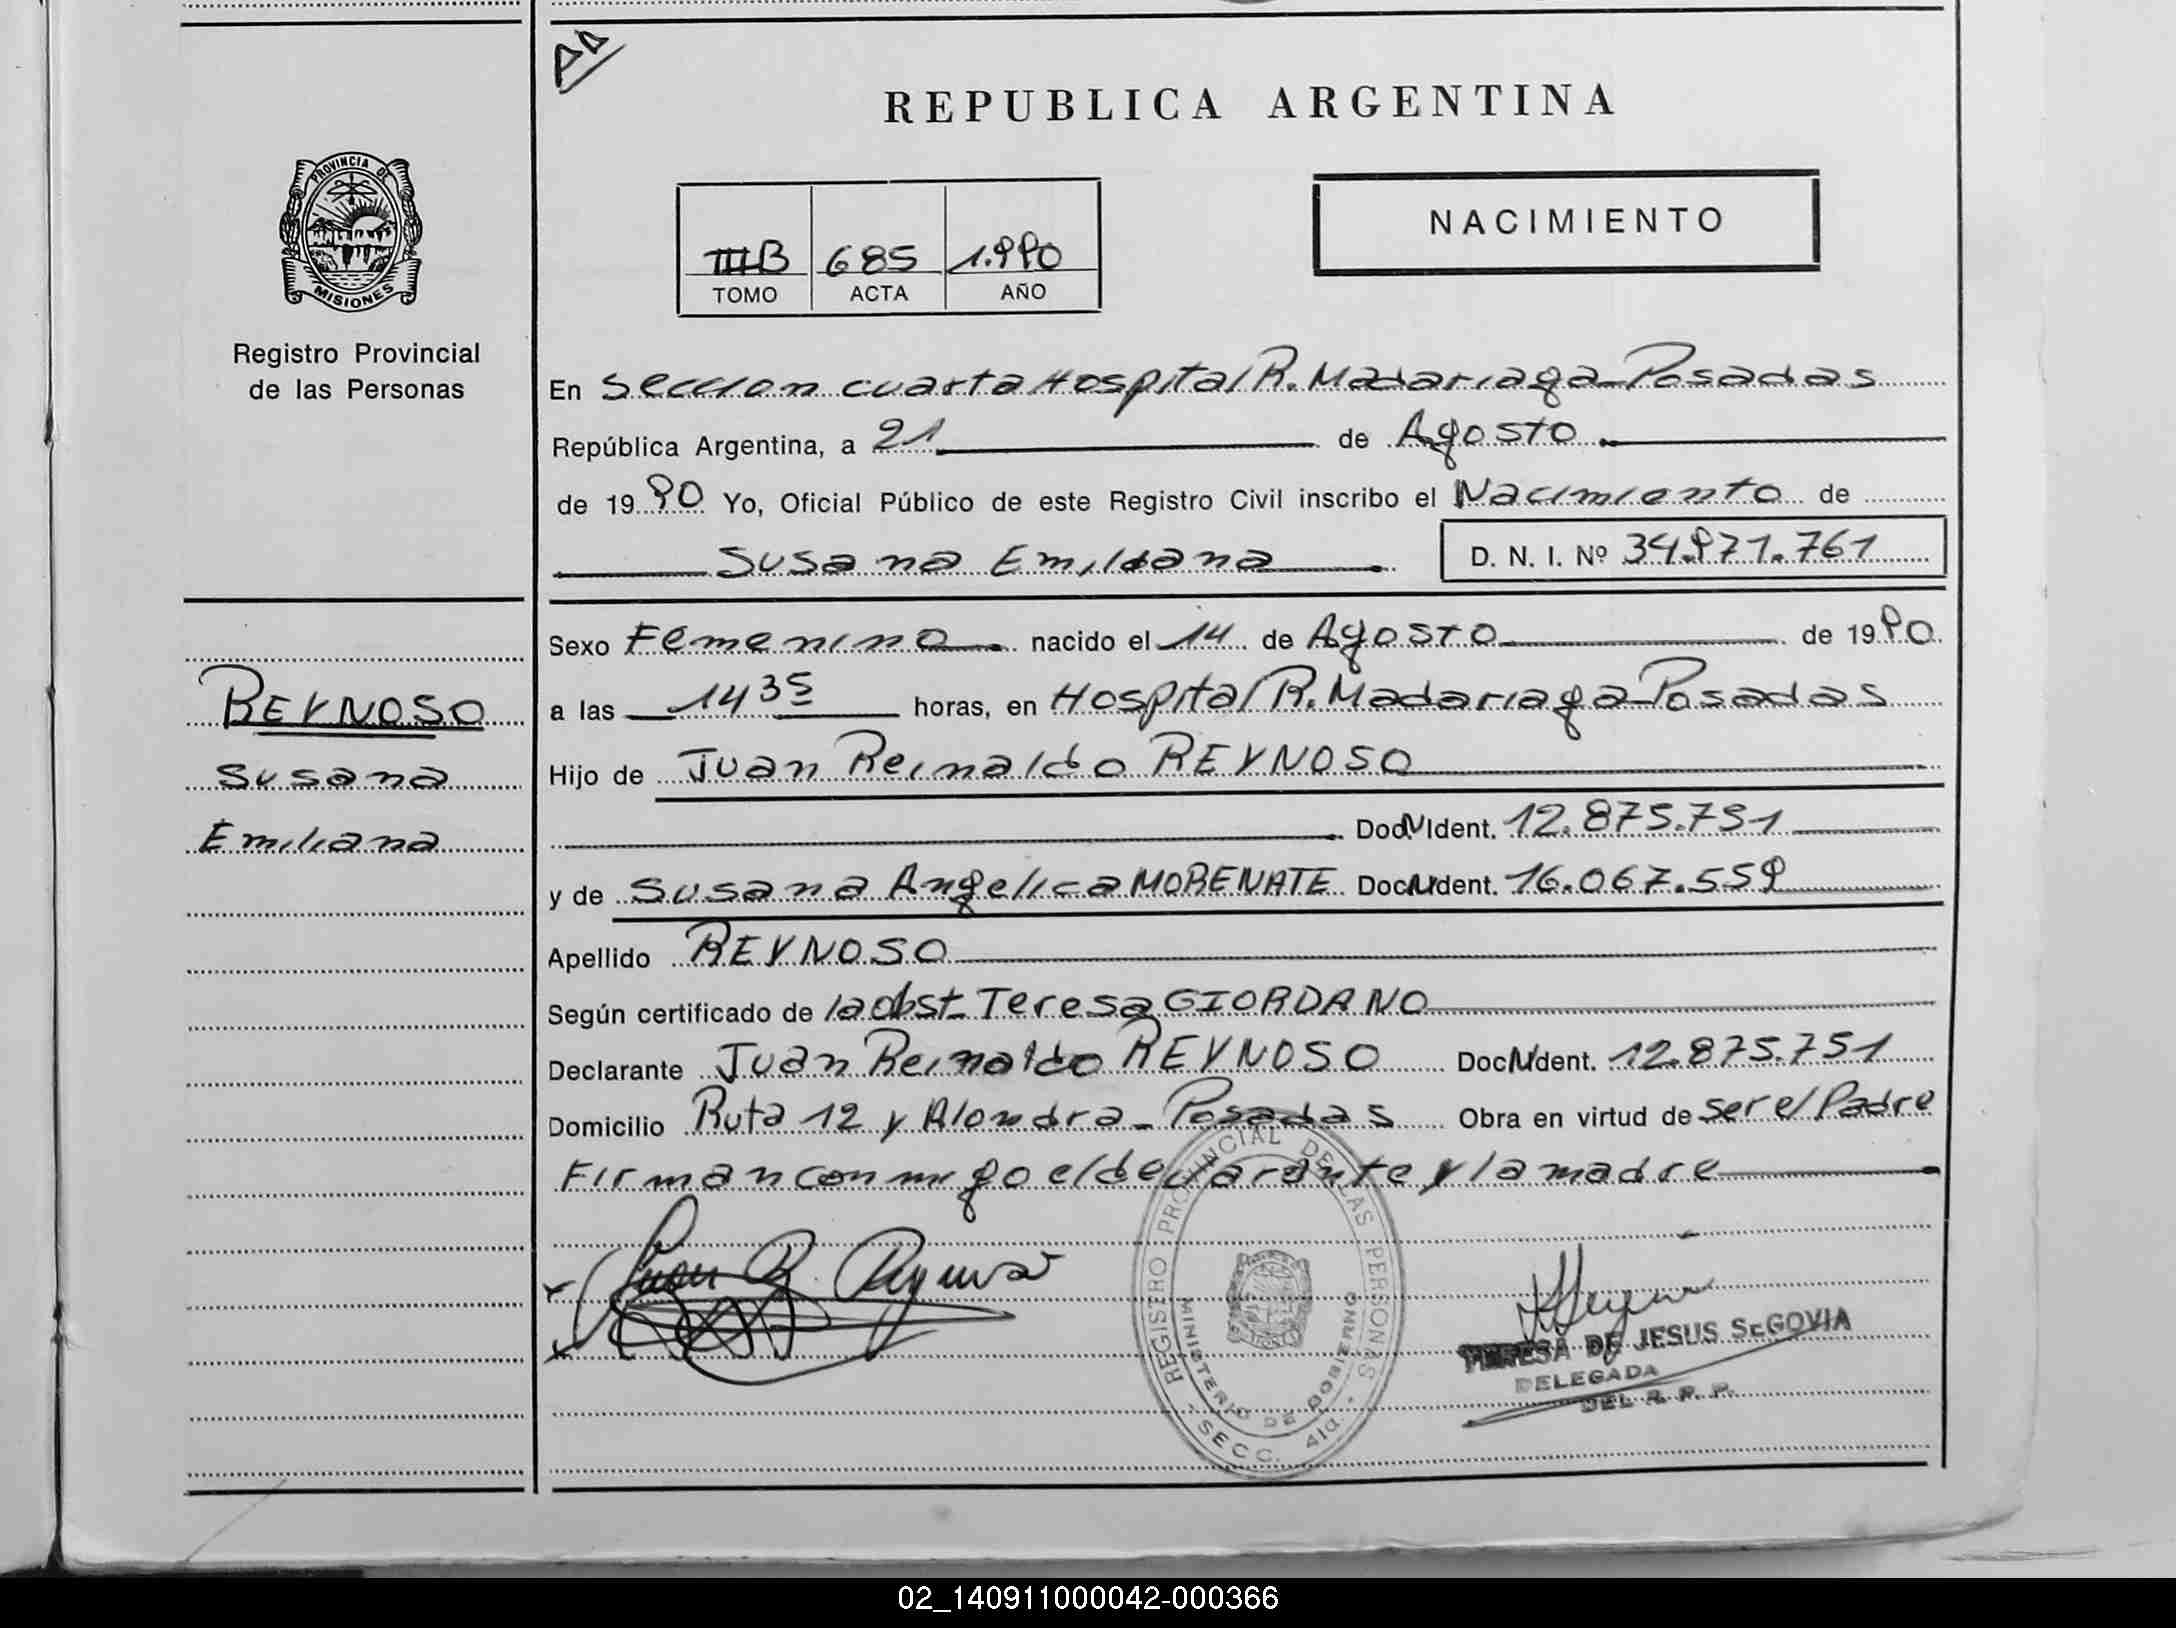 REPUBLICA ARGENTINA
PROVINCIA DE
MISIONES
Registro Provincial
de las Personas
NACIMIENTO
IIIB 685 1.990
TOMO ACTA AÑO
En Seccion cuarta Hospital R. Madariaga - Posadas
República Argentina, a 21 de Agosto
de 1990 Yo, Oficial Público de este Registro Civil inscribo el Nacimiento de
Susana Emiliana D. N. I. Nº 34.971.761
REYNOSO
Susana
Emiliana
Sexo Femenino nacido el 14 de Agosto de 1990
a las 14 35 horas, en Hospital R. Madariaga - Posadas
Hijo de Juan Reinaldo REYNOSO
Doc. Ident. 12.875.751
y de Susana Angelica MORENATE Doc. Ident. 16.067.559
Apellido REYNOSO
Según certificado de la obst. Teresa GIORDANO
Declarante Juan Reinaldo REYNOSO Doc. Ident. 12.875.751
Domicilio Ruta 12 y Alondra - Posadas Obra en virtud de ser el Padre
Firman conmigo el declarante y la madre
Juan R. Reynoso
REGISTRO PROVINCIAL DE LAS PERSONAS
MINISTERIO DE GOBIERNO
- SECC. 4ta. -
TERESA DE JESUS SEGOVIA
DELEGADA
DEL R. P. P.
02_140911000042-000366